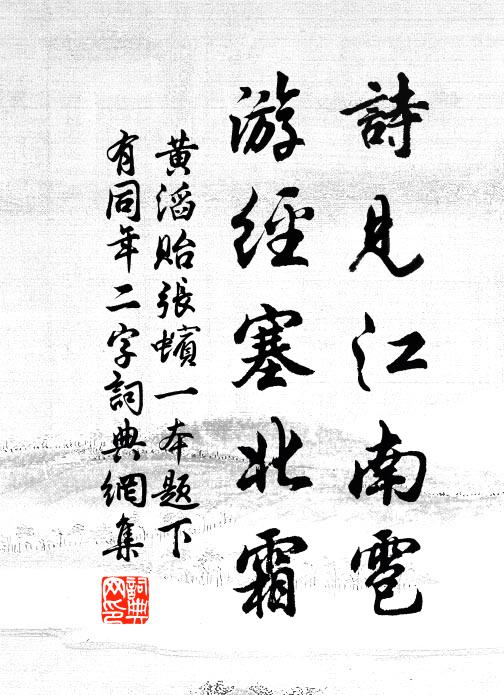 詩見江南雹
游經塞北霜
黃滔貽張蠙一本題下
有同年二字詞典網集
詞典
网印